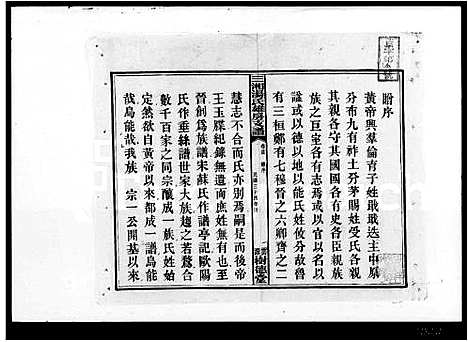 盼序
黃帝興羣倫育子姓戢戢選主中原
分布九有祚土分茅賜姓受氏各親
其親各守其國國各有史各臣親
族之巨室各有志焉或以官以名以
謚或以居以地以能氏姓攸分故魯
有三桓鄭有七穆晉之六卿齊之二
三湘湯氏雄房支譜
卷首
樹德堂
慧志不合而氏亦別焉嗣是而後帝
王玉牒紀錄無遺而庶姓無有也至
晉創爲族譜宋蘇氏作譜亭記歐陽
氏作垂絲譜世家大族遵之若鰲合
數千百家之同宗釀成一族氏姓始
定然欲自黃帝以來都成一譜烏能
哉烏能哉我族 宗一公開基以來